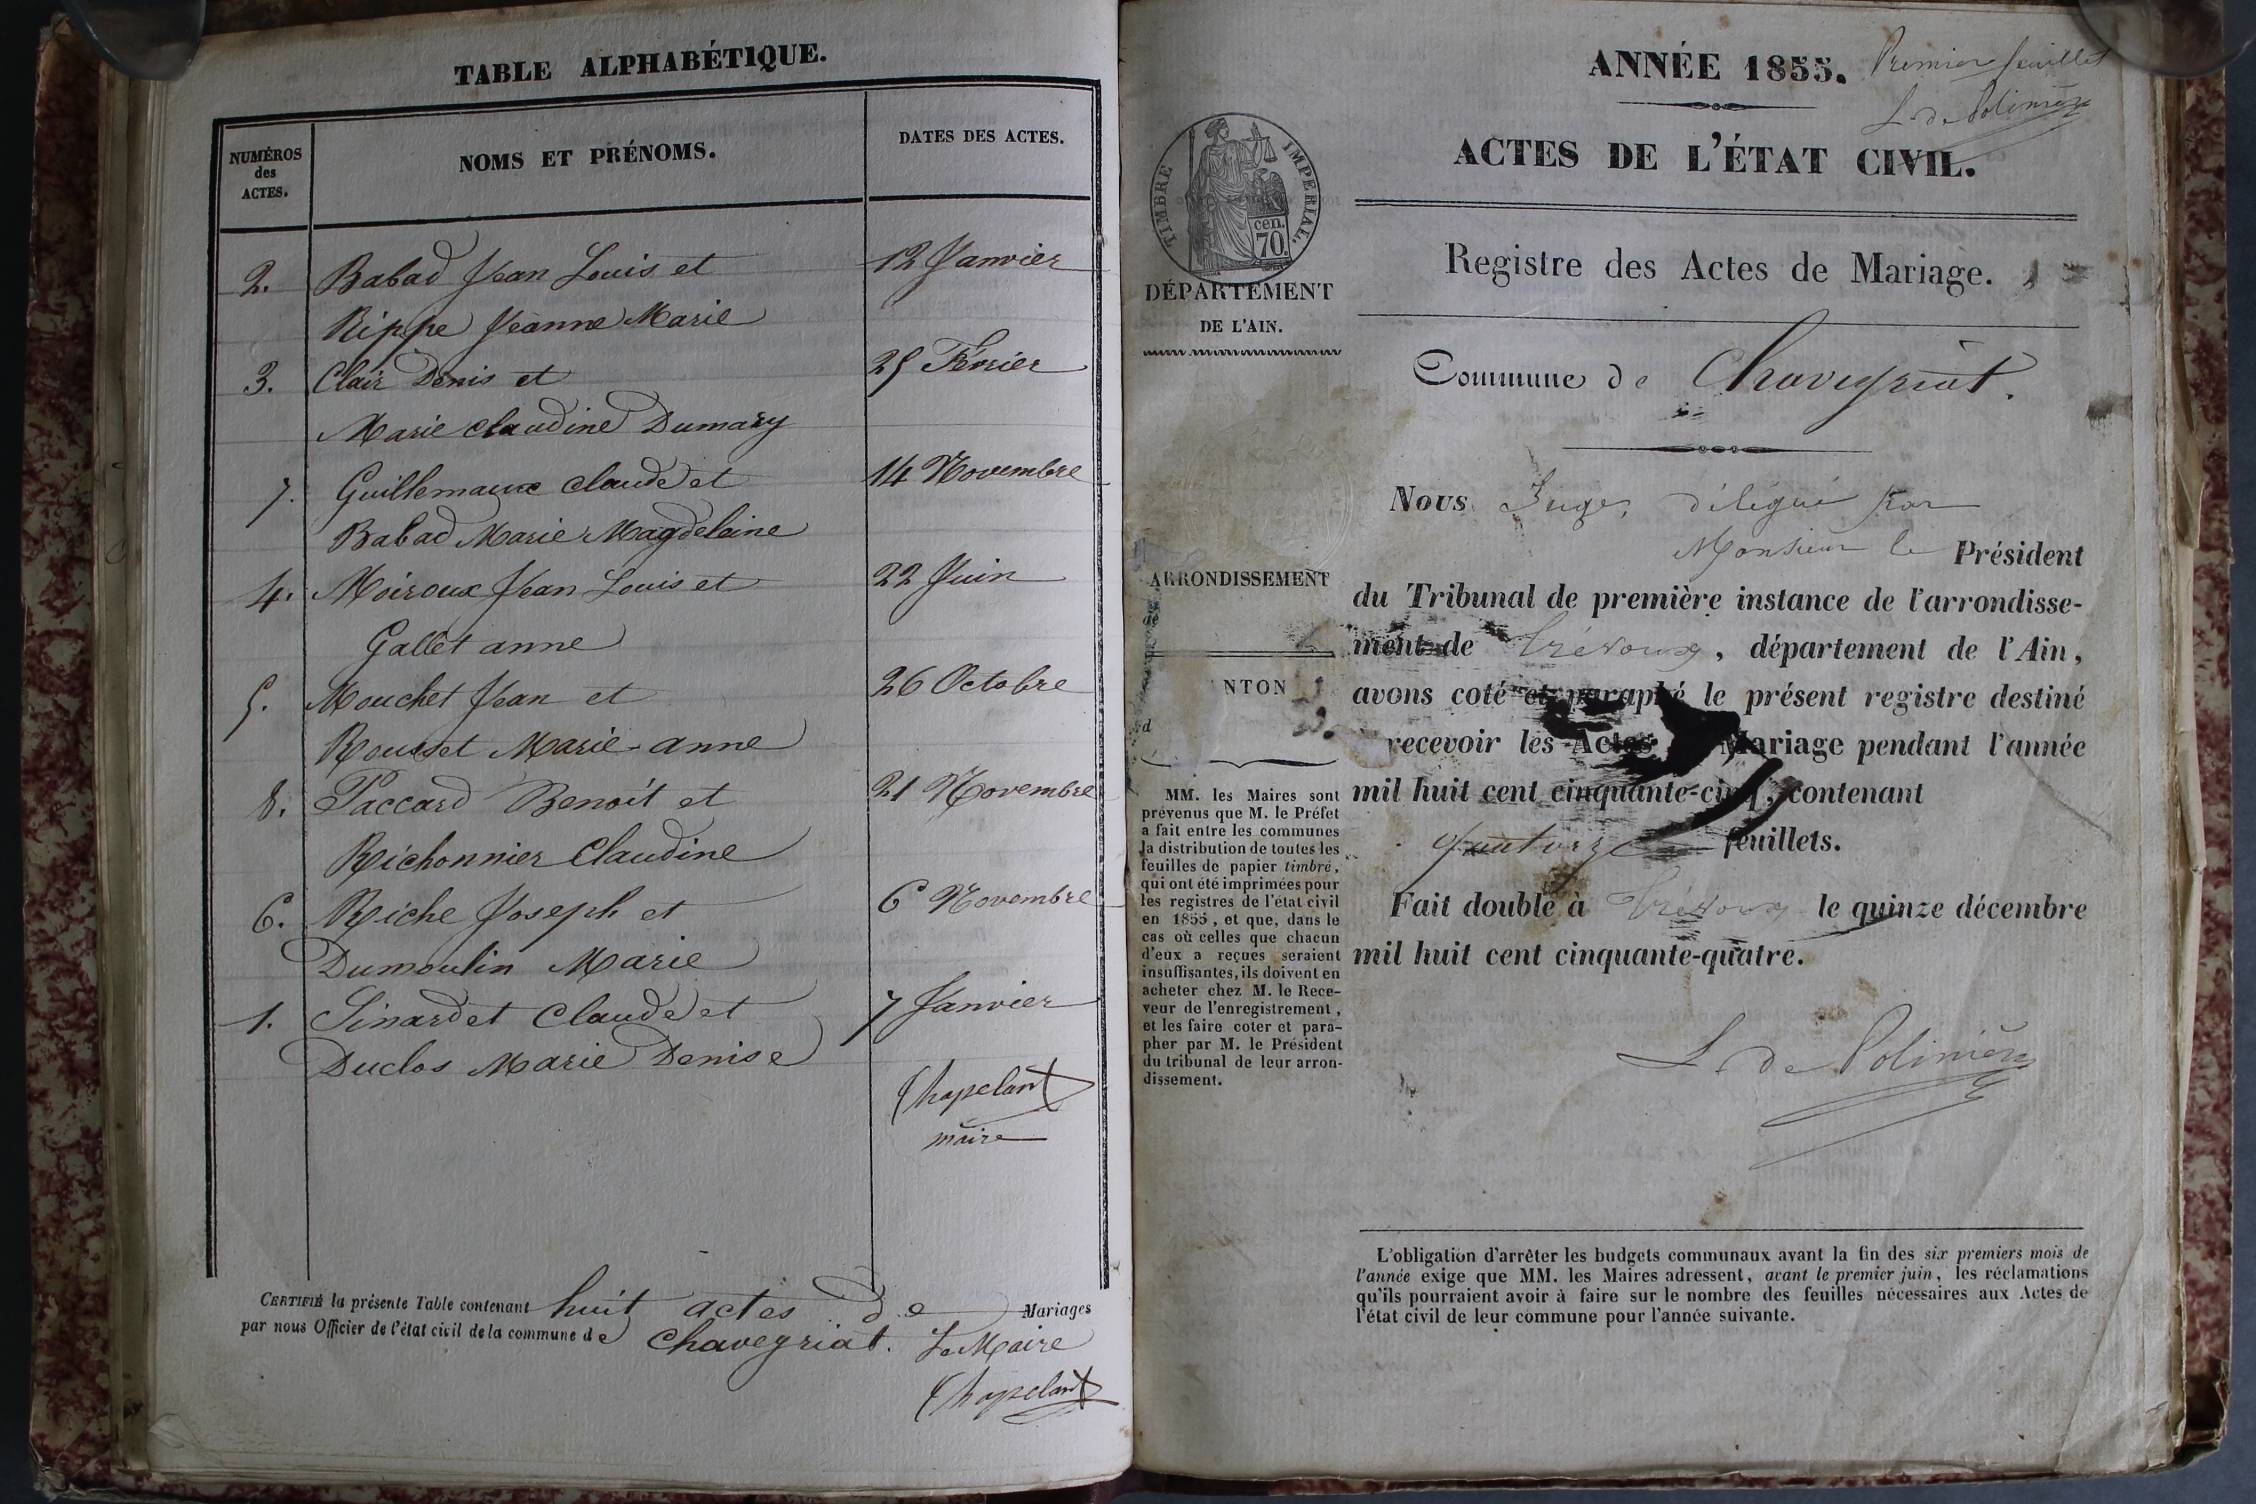 TABLE ALPHABÉTIQUE.
NUMÉROS
des
ACTES.
NOMS ET PRÉNOMS.
DATES DES ACTES.
2. Babad Jean Louis et 12 Janvier
Rippe Jeanne Marie
3. Clair Denis et 25 Février
Marie claudine Dumary
7. Guillemaux claude et 14 Novembre
Babad Marie Magdeleine
4. Moiroux Jean Louis et 22 Juin
Gallet anne
5. Mouchet Jean et 26 Octobre
Rousset Marie-anne
8. Paccard Benoit et 21 Novembre
Richonnier Claudine
6. Riche Joseph et 6 Novembre
Dumoulin Marie
1. Sinardet Claude et 7 Janvier
Duclos Marie Denise
Chapelant
maire
CERTIFIÉ la présente Table contenant huit actes de Mariages
par nous Officier de l'état civil de la commune de Chaveyriat. Le Maire
Chapelant
ANNÉE 1855. Premier feuillet
L. de Polinière
ACTES DE L'ÉTAT CIVIL.
TIMBRE IMPERIAL.
cen.
70.
DÉPARTEMENT
DE L'AIN.
Registre des Actes de Mariage.
Commune de Chaveyriat.
Nous Juge, délégué par
Monsieur le Président
du Tribunal de première instance de l'arrondisse-
ment de Trévoux, département de l'Ain,
avons coté et paraphé le présent registre destiné
recevoir les Actes Mariage pendant l'année
mil huit cent cinquante-cinq, contenant
quatorze feuillets.
Fait double à Trévoux le quinze décembre
mil huit cent cinquante-quatre.
L. de Polinière
ARRONDISSEMENT
de
NTON
d
MM. les Maires sont
prévenus que M. le Préfet
a fait entre les communes
la distribution de toutes les
feuilles de papier timbré,
qui ont été imprimées pour
les registres de l'état civil
en 1855, et que, dans le
cas où celles que chacun
d'eux a reçues seraient
insuffisantes, ils doivent en
acheter chez M. le Rece-
veur de l'enregistrement,
et les faire coter et para-
pher par M. le Président
du tribunal de leur arron-
dissement.
L'obligation d'arrêter les budgets communaux avant la fin des six premiers mois de
l'année exige que MM. les Maires adressent, avant le premier juin, les réclamations
qu'ils pourraient avoir à faire sur le nombre des feuilles nécessaires aux Actes de
l'état civil de leur commune pour l'année suivante.